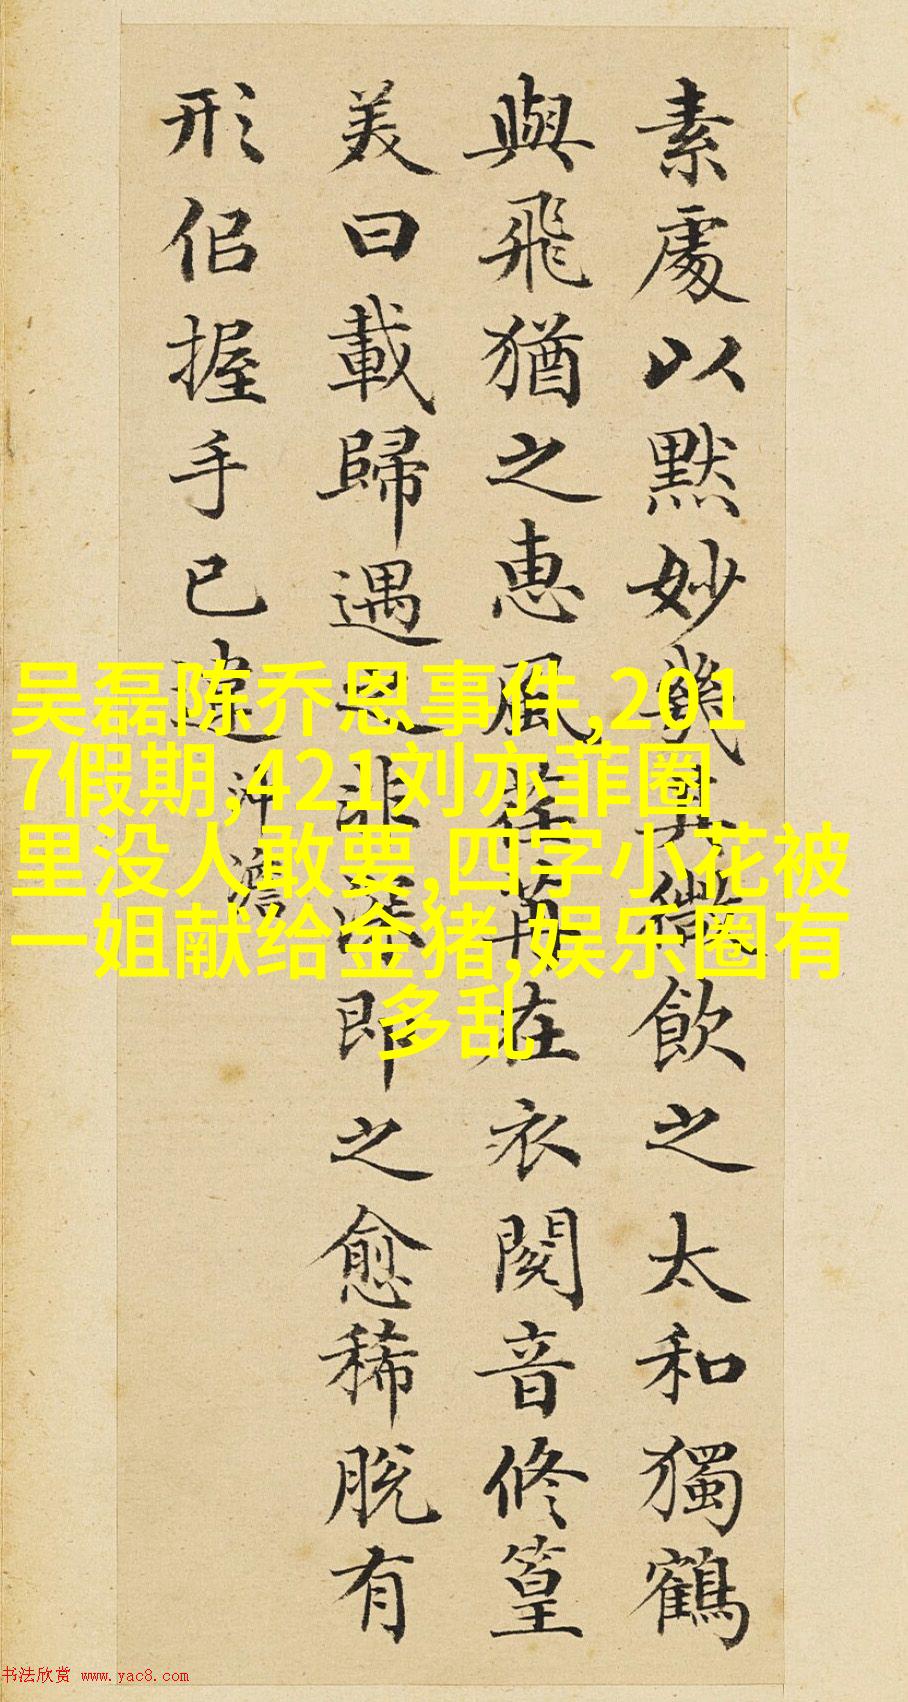 素處以默妙幾其微飲之太和獨鶴
與飛猶之惠風荏苒在衣閱音修篁
美曰載歸遇之匪深即之愈稀脫有
形佀握手已違
沖澹
吴磊陈乔恩事件,201
7假期,421刘亦菲圈
里没人敢要,四字小花被
一姐献给金猪,娱乐圈有
多乱
书法欣赏 www.yac8.com